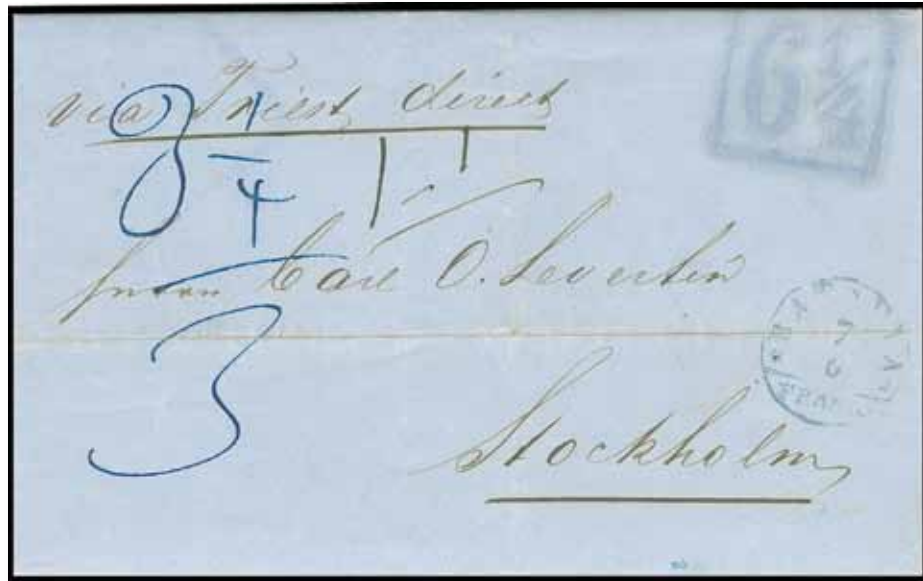 6 1/4
via Triest direct
3 1/4
Herrn Carl O. Levertin
3
Stockholm